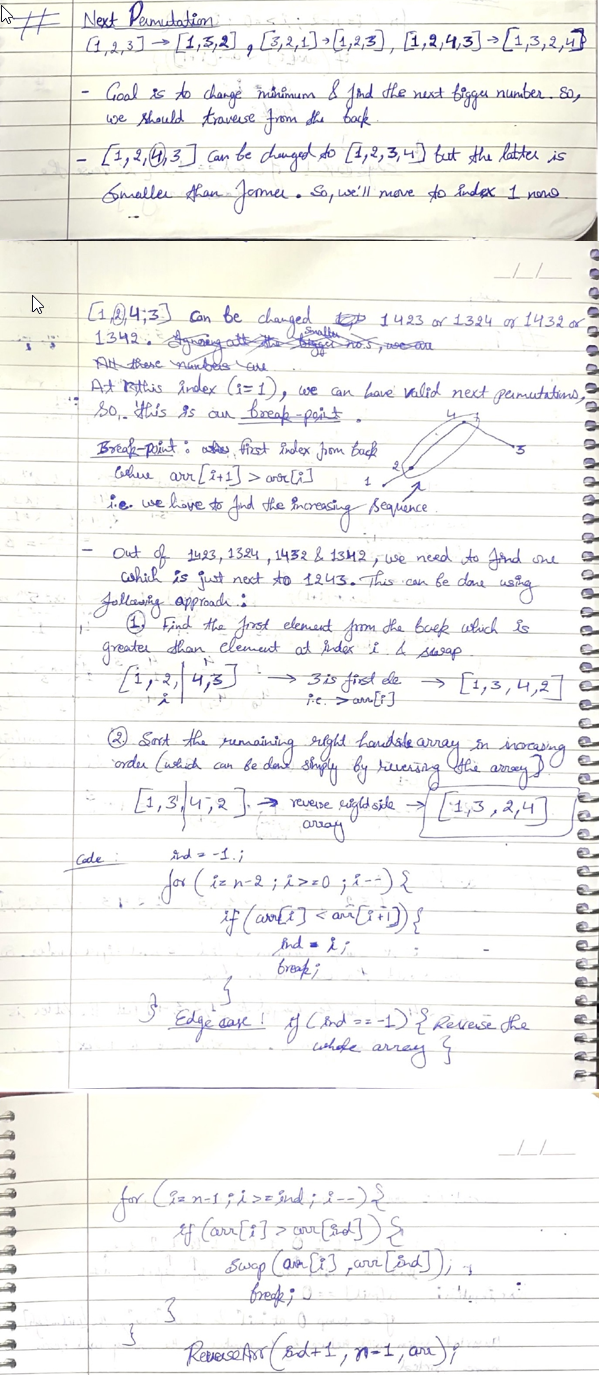 # Next Permutation
[1,2,3] → [1,3,2] , [3,2,1] → [1,2,3] , [1,2,4,3] → [1,3,2,4]
- Goal is to change minimum & find the next bigger number. So,
we should traverse from the back.
- [1,2,4,3] can be changed to [1,2,3,4] but the latter is
smaller than former. So, we'll move to index 1 now.
__/__/__
[1,2,4,3] can be changed to 1423 or 1324 or 1432 or
1342. Ignoring all the bigger smaller no.s, we are
All these numbers are
At this index (i=1), we can have valid next permutations,
So, this is our break-point.
Break-point: first index from back
where arr[i+1] > arr[i]
i.e. we have to find the increasing sequence
1 2 4 3
- Out of 1423, 1324, 1432 & 1342, we need to find one
which is just next to 1243. This can be done using
following approach :
① Find the first element from the back which is
greater than element at index i & swap
[1, 2,| 4,3] → 3 is first ele → [1,3,4,2]
i i.e. > arr[i]
② Sort the remaining right handside array in increasing
order (which can be done simply by reversing the array)
[1,3|4,2] → reverse right side → [1,3,2,4]
array
Code : ind = -1;
for (i= n-2 ; i>=0 ; i--) {
if (arr[i] < arr[i+1]) {
ind = i;
break;
}
}
Edge case : if (ind == -1) { Reverse the
whole array }
__/__/__
for (i= n-1 ; i>= ind ; i--) {
if (arr[i] > arr[ind]) {
swap (arr[i], arr[ind]);
break;
}
}
ReverseArr (ind+1, n-1, arr);